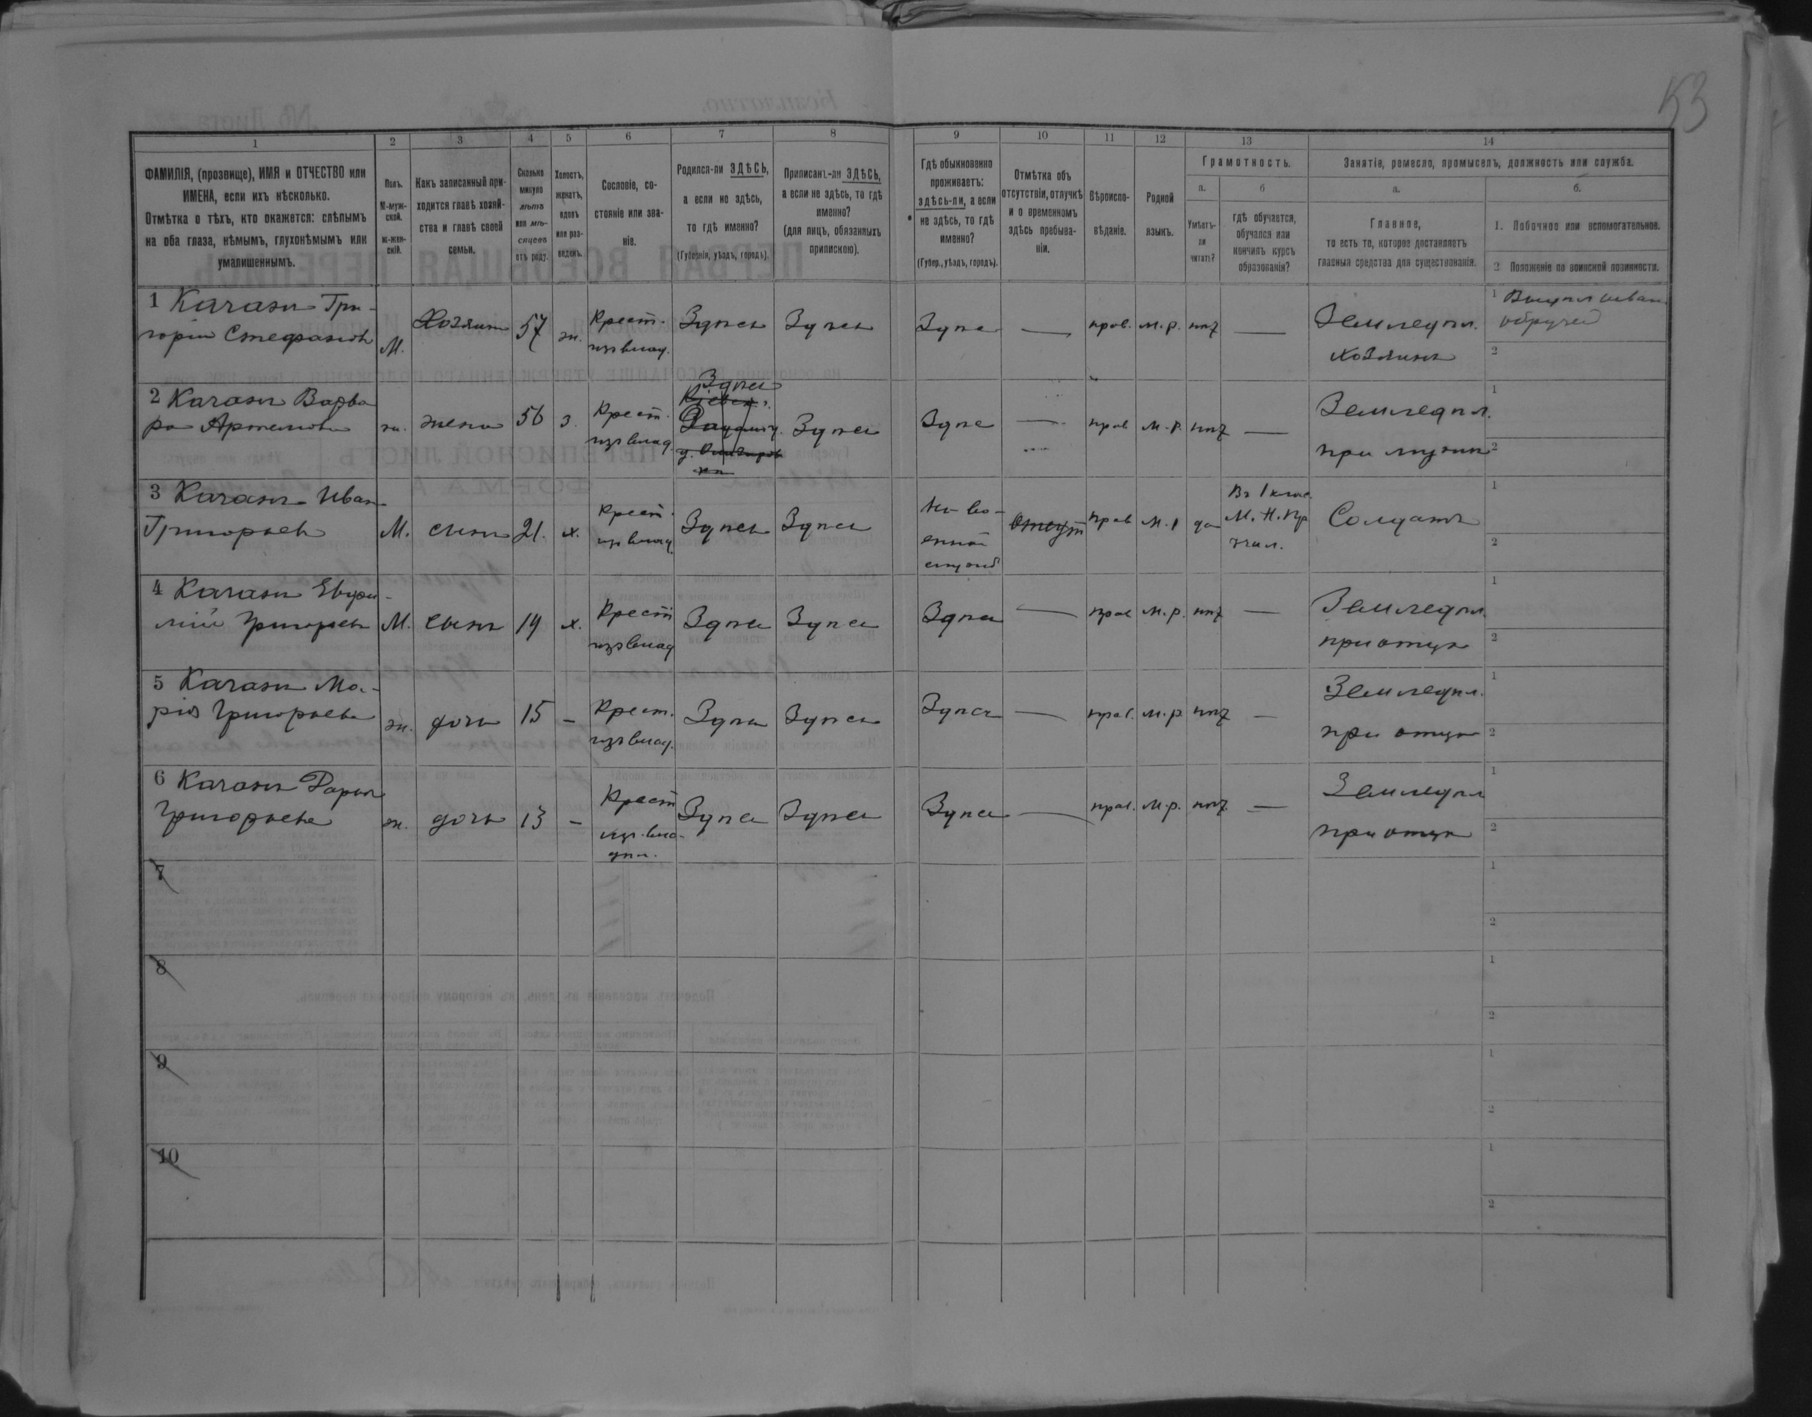 53
1 2 3 4 5 6 7 8 9 10 11 12 13 14
ФАМИЛІЯ, (прозвище), ИМЯ и ОТЧЕСТВО или
ИМЕНА, если ихъ нѣсколько.
Отмѣтка о тѣхъ, кто окажется: слѣпымъ
на оба глаза, нѣмымъ, глухонѣмымъ или
умалишеннымъ.
Полъ.
М-муж-
ской.
ж-жен-
скій.
Какъ записанный при-
ходится главѣ хозяй-
ства и главѣ своей
семьи.
Сколько
минуло
лѣтъ
или мѣ-
сяцевъ
отъ роду.
Холостъ,
женатъ,
вдовъ
или раз-
веденъ.
Сословіе, со-
стояніе или зва-
ніе.
Родился-ли ЗДѢСЬ,
а если не здѣсь,
то гдѣ именно?
(Губернія, уѣздъ, городъ).
Приписанъ-ли ЗДѢСЬ,
а если не здѣсь, то гдѣ
именно?
(для лицъ, обязанныхъ
припискою).
Гдѣ обыкновенно
проживаетъ:
здѣсь-ли, а если
не здѣсь, то гдѣ
именно?
(Губер., уѣздъ, городъ).
Отмѣтка объ
отсутствіи, отлучкѣ
и о временномъ
здѣсь пребыва-
ніи.
Вѣроиспо-
вѣданіе.
Родной
языкъ.
Грамотность.
а.
Умѣетъ-
ли
читать?
б
гдѣ обучается,
обучался или
кончилъ курсъ
образованія?
Занятіе, ремесло, промыселъ, должность или служба.
а.
Главное,
то есть то, которое доставляетъ
главныя средства для существованія.
б.
1. Побочное или вспомогательное.
2 Положеніе по воинской повинности.
1 Качанъ Гри-
горій Стефановъ
М.
Хозяинъ
57
ж.
Крест.
изъ влад.
Здѣсь
Здѣсь
Здѣсь
—
прав.
м.р.
нѣт
—
Земледѣл.
хозяинъ
1
обручей
2
2 Качанъ Варва
ра Артемова
ж.
жена
56
з.
Крест.
изъ влад.
Здѣсь
Кіевск.
Здѣсь
Здѣсь
—
прав
м.р.
нѣт
—
Земледѣл.
при мужѣ
1
2
3 Качанъ Иванъ
Григорьевъ
М.
сынъ
21.
х.
Крест.
изъ влад.
Здѣсь
Здѣсь
На во-
енной
службѣ
отсут
прав
м.р
да
Въ 1 клас.
М. Н. Пр.
учил.
Солдатъ
1
2
4 Качанъ Евфи-
мій Григорьевъ
М.
сынъ
19
х.
Крест
изъ влад
Здѣсь
Здѣсь
Здѣсь
—
прав
м.р.
нѣт
—
Земледѣл.
при отцѣ
1
2
5 Качанъ Ма-
рія Григорьева
ж.
дочь
15
—
Крест.
изъ влад.
Здѣсь
Здѣсь
Здѣсь
—
прав.
м.р.
нѣт
—
Земледѣл.
при отцѣ
1
2
6 Качанъ Дарья
Григорьева
ж.
дочь
13
—
Крест
изъ вла-
дѣл.
Здѣсь
Здѣсь
Здѣсь
—
прав.
м.р.
нѣт
—
Земледѣл
при отцѣ
1
2
7
1
2
8
1
2
9
1
2
10
1
2